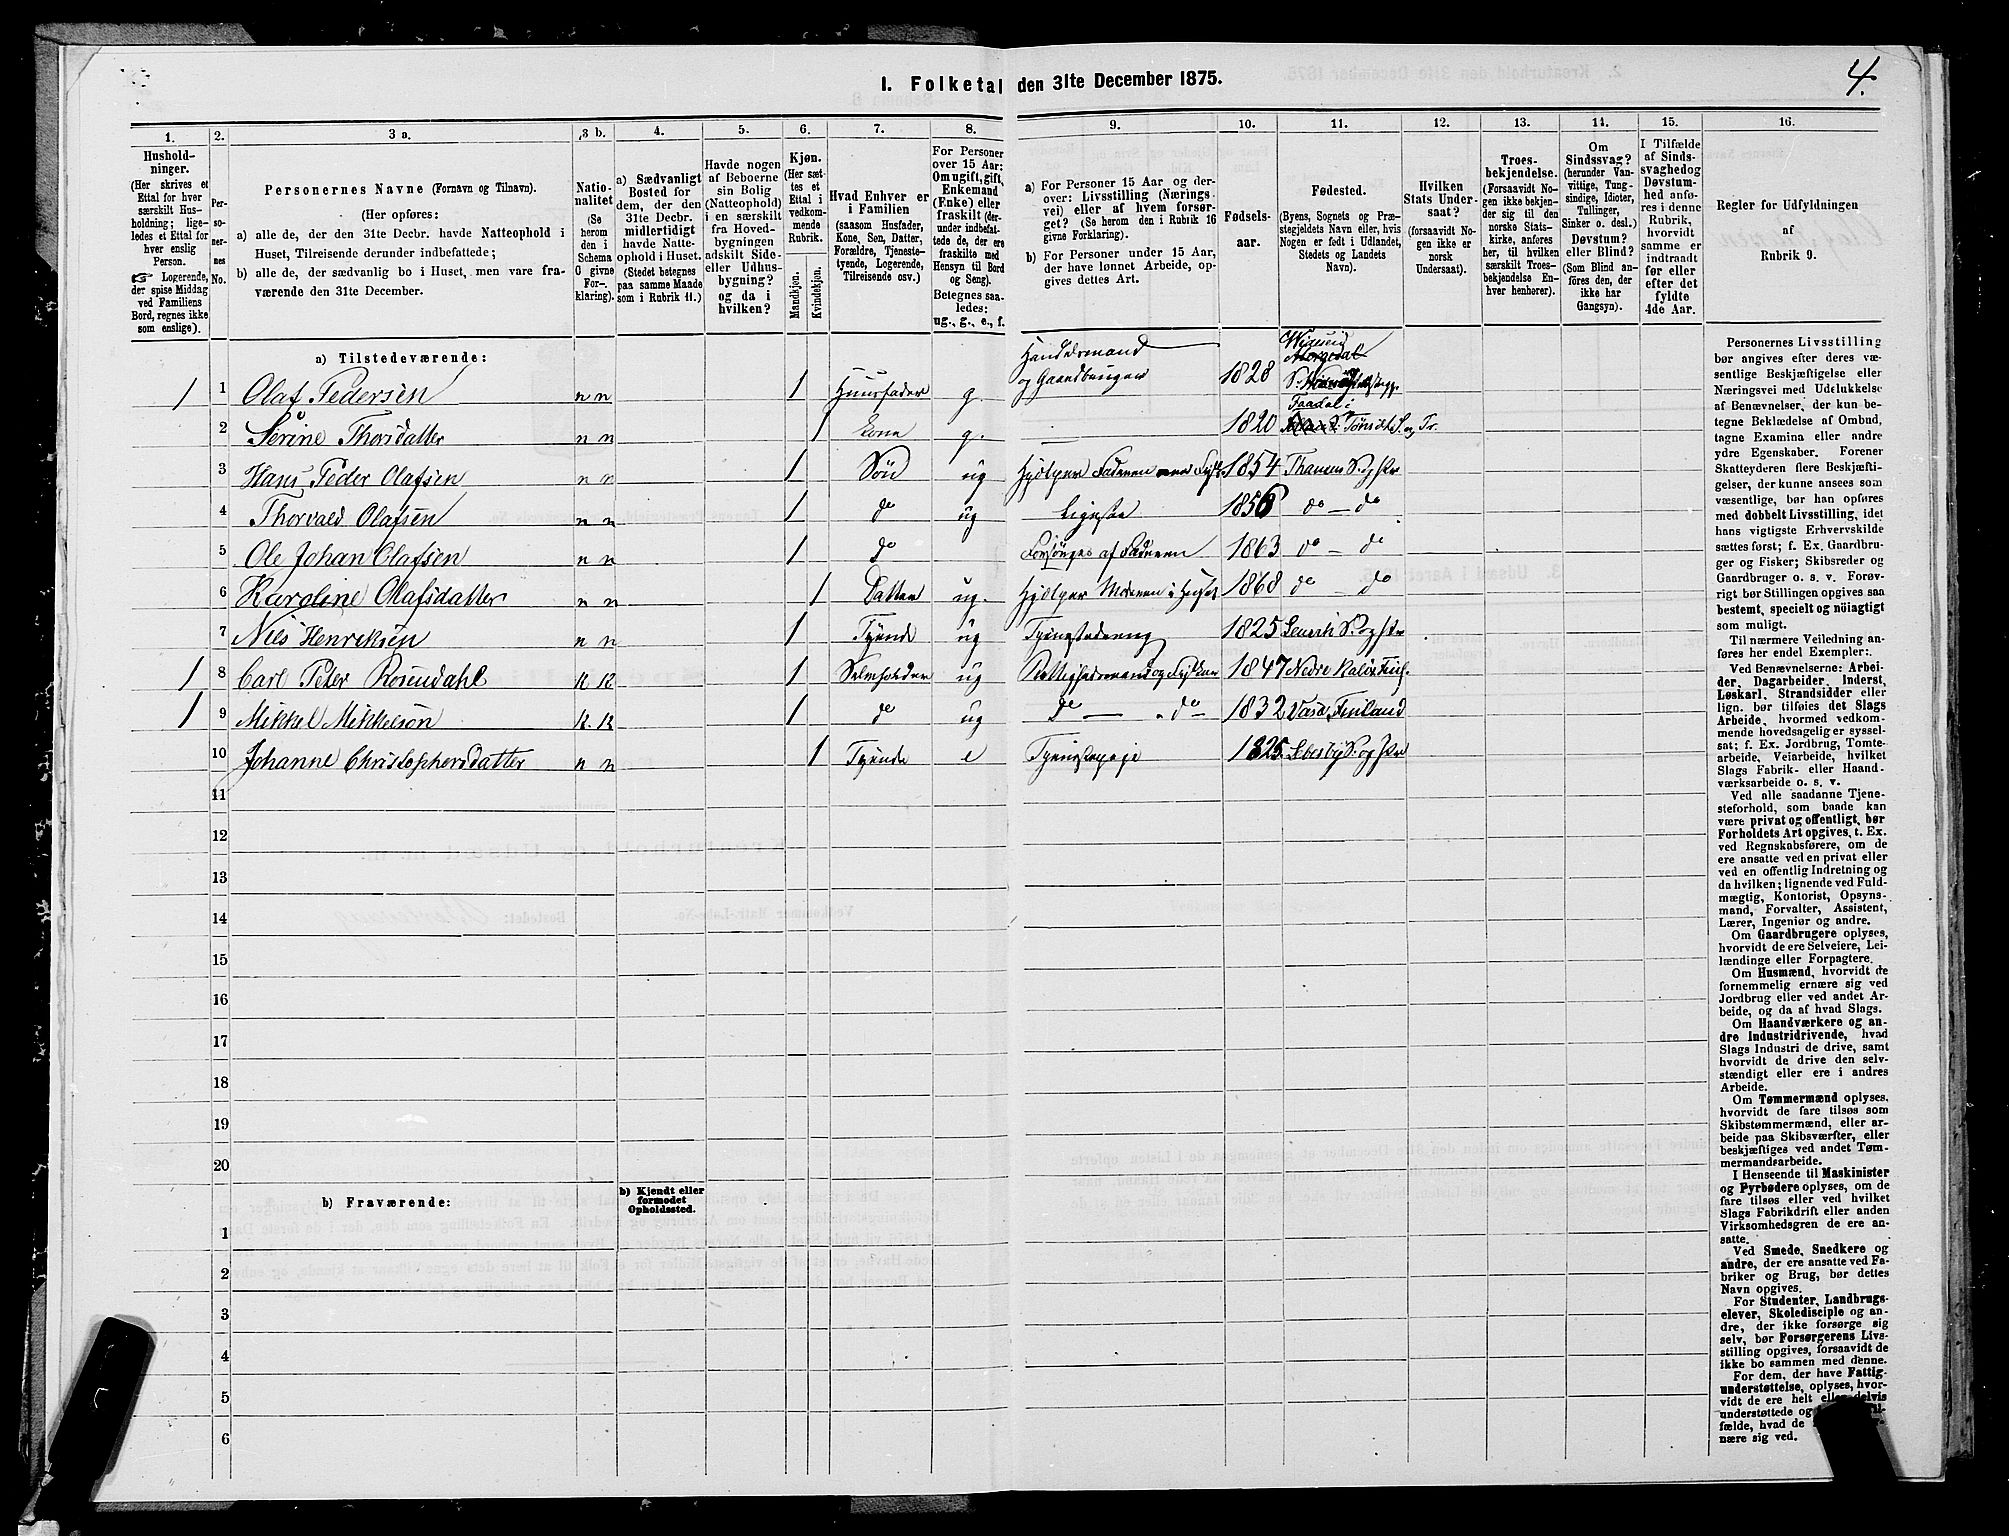 4.
I. Folketal den 31te December 1875.
1. 2. 3 a. 3 b. 4. 5. 6. 7. 8. 9. 10. 11. 12. 13. 14. 15. 16.
Hushold-
ninger.
(Her skrives et
Ettal for hver
særskilt Hus-
holdning; lige-
ledes et Ettal for
hver enslig
Person.
☞ Logerende,
der spise Middag
ved Familiens
Bord, regnes ikke
som enslige).
Per-
so-
ner-
nes
No.
Personernes Navne (Fornavn og Tilnavn).
(Her opføres:
a) alle de, der den 31te Decbr. havde Natteophold i
Huset, Tilreisende derunder indbefattede;
b) alle de, der sædvanlig bo i Huset, men vare fra-
værende den 31te December.
Natio-
nalitet
(Se
herom
den i
Schema
O givne
For-
klaring).
a) Sædvanligt
Bosted for
dem, der den
31te Decbr.
midlertidigt
havde Natte-
ophold i Huset.
(Stedet betegnes
paa samme Maade
som i Rubrik 11.)
Havde nogen
af Beboerne
sin Bolig
(Natteophold)
i en særskilt
fra Hoved-
bygningen
adskilt Side-
eller Udhus-
bygning?
og da i
hvilken?
Kjøn.
(Her sæt-
tes et
Ettal i
vedkom-
mende
Rubrik.
Mandkjøn.
Kvindekjøn.
Hvad Enhver er
i Familien
(saasom Husfader,
Kone, Søn, Datter,
Forældre, Tjeneste-
tyende, Logerende,
Tilreisende osv.)
For Personer
over 15 Aar:
Om ugift, gift,
Enkemand
(Enke) eller
fraskilt (der-
under indbefat-
tede de, der ere
fraskilte med
Hensyn til Bord
og Seng).
Betegnes saa-
ledes:
ug., g., e., f.
a) For Personer 15 Aar og der-
over: Livsstilling (Nærings-
vei) eller af hvem forsør-
get? (Se herom den i Rubrik 16
givne Forklaring).
b) For Personer under 15 Aar,
der have lønnet Arbeide, op-
gives dettes Art.
Fødsels-
aar.
Fødested.
(Byens, Sognets og Præ-
stegjeldets Navn eller, hvis
Nogen er født i Udlandet,
Stedets og Landets
Navn).
Hvilken
Stats Under-
saat?
(forsaavidt No-
gen ikke er
norsk
Undersaat).
Troes-
bekjendelse.
(Forsaavidt No-
gen ikke bekjen-
der sig til den
norske Stats-
kirke, anføres
her, til hvilken
særskilt Troes-
bekjendelse En-
hver henhører).
Om
Sindssvag?
(herunder Van-
vittige, Tung-
sindige, Idioter,
Tullinger,
Sinker o. desl.)
Døvstum?
eller Blind?
(Som Blind an-
føres den, der
ikke har
Gangsyn).
I Tilfælde
af Sinds-
svaghed og
Døvstum-
hed anfø-
res i denne
Rubrik,
hvorvidt
samme er
indtraadt
før eller
efter det
fyldte
4de Aar.
Regler for Udfyldningen
af
Rubrik 9.
a) Tilstedeværende:
1 1 Olaf Pedersen n n 1 Huusfader g. Handelsmand og Gaardbruger 1828
2 Serine Thorsdatter n n 1 Kone g. 1820
3 Hans Peder Olafsen n n 1 Søn ug Hjælper Faderen 1854
4 Thorvald Olafsen n n 1 do ug Ligesaa 1856 do — do
5 Ole Johan Olafsen n n 1 do Forsørges af Faderen 1863 do — do
6 Karoline Olafsdatter n n 1 Datter ug. Hjælper Moderen i Huset 1868 do — do
7 Nils Henriksen n n 1 Tjende ug 1825
1 8 Carl Peter Rosendahl k k 1 ug 1847 Nedre
1 9 Mikkel Mikkelsen k. k 1 do ug do — do 1832 Vasa, Finland
10 Johanne Christophersdatter n n 1 Tjende e Tjenestepige 1825. Lebesby S. og Pr
11
12
13
14
15
16
17
18
19
20
b) Fraværende:
b) Kjendt eller
formodet
Opholdssted.
1
2
3
4
5
6
Personernes Livsstilling
bør angives efter deres væ-
sentlige Beskjæftigelse eller
Næringsvei med Udelukkelse
af Benævnelser, der kun be-
tegne Beklædelse af Ombud,
tagne Examina eller andre
ydre Egenskaber. Forener
Skatteyderen flere Beskjæfti-
gelser, der kunne ansees som
væsentlige, bør han opføres
med dobbelt Livsstilling, idet
hans vigtigste Erhvervskilde
sættes først; f. Ex. Gaardbru-
ger og Fisker; Skibsreder og
Gaardbruger o. s. v. Forøv-
rigt bør Stillingen opgives saa
bestemt, specielt og nøiagtigt
som muligt.
Til nærmere Veiledning an-
føres her endel Exempler:
Ved Benævnelserne: Arbei-
der, Dagarbeider, Inderst,
Løskarl, Strandsidder eller
lign. bør tilføies det Slags
Arbeide, hvormed vedkom-
mende hovedsagelig er syssel-
sat; f. Ex. Jordbrug, Tomte-
arbeide, Veiarbeide, hvilket
Slags Fabrik- eller Haand-
værksarbeide o. s. v.
Ved alle saadanne Tjene-
steforhold, som baade kan
være privat og offentligt, bør
Forholdets Art opgives, t. Ex.
ved Regnskabsførere, om de
ere ansatte ved en privat eller
ved en offentlig Indretning og
da hvilken; lignende ved Fuld-
mægtig, Kontorist, Opsyns-
mand, Forvalter, Assistent,
Lærer, Ingeniør og andre.
Om Gaardbrugere oplyses,
hvorvidt de ere Selveiere, Lei-
lændinge eller Forpagtere.
Om Husmænd, hvorvidt de
fornemmelig ernære sig ved
Jordbrug eller ved andet Ar-
beide, og da af hvad Slags.
Om Haandværkere og an-
dre Industridrivende, hvad
Slags Industri de drive, samt
hvorvidt de drive den selv-
stændigt eller ere i andres
Arbeide.
Om Tømmermænd oplyses,
hvorvidt de fare tilsøs som
Skibstømmermænd, eller ar-
beide paa Skibsværfter, eller
beskjæftiges ved andet Tøm-
mermandsarbeide.
I Henseende til Maskinister
og Fyrbødere oplyses, om de
fare tilsøs eller ved hvilket
Slags Fabrikdrift eller anden
Virksomhedsgren de ere an-
satte.
Ved Smede, Snedkere og
andre, der ere ansatte ved Fa-
briker og Brug, bør dettes
Navn opgives.
For Studenter, Landbrugs-
elever, Skoledisciple og an-
dre, der ikke forsørge sig
selv, bør Forsørgerens Livs-
stilling opgives, forsaavidt de
ikke bo sammen med denne.
For dem, der have Fattig-
understøttelse, oplyses, hvor-
vidt de ere helt eller delvis
understøttede og
fælde, hvad de
nære sig ved.